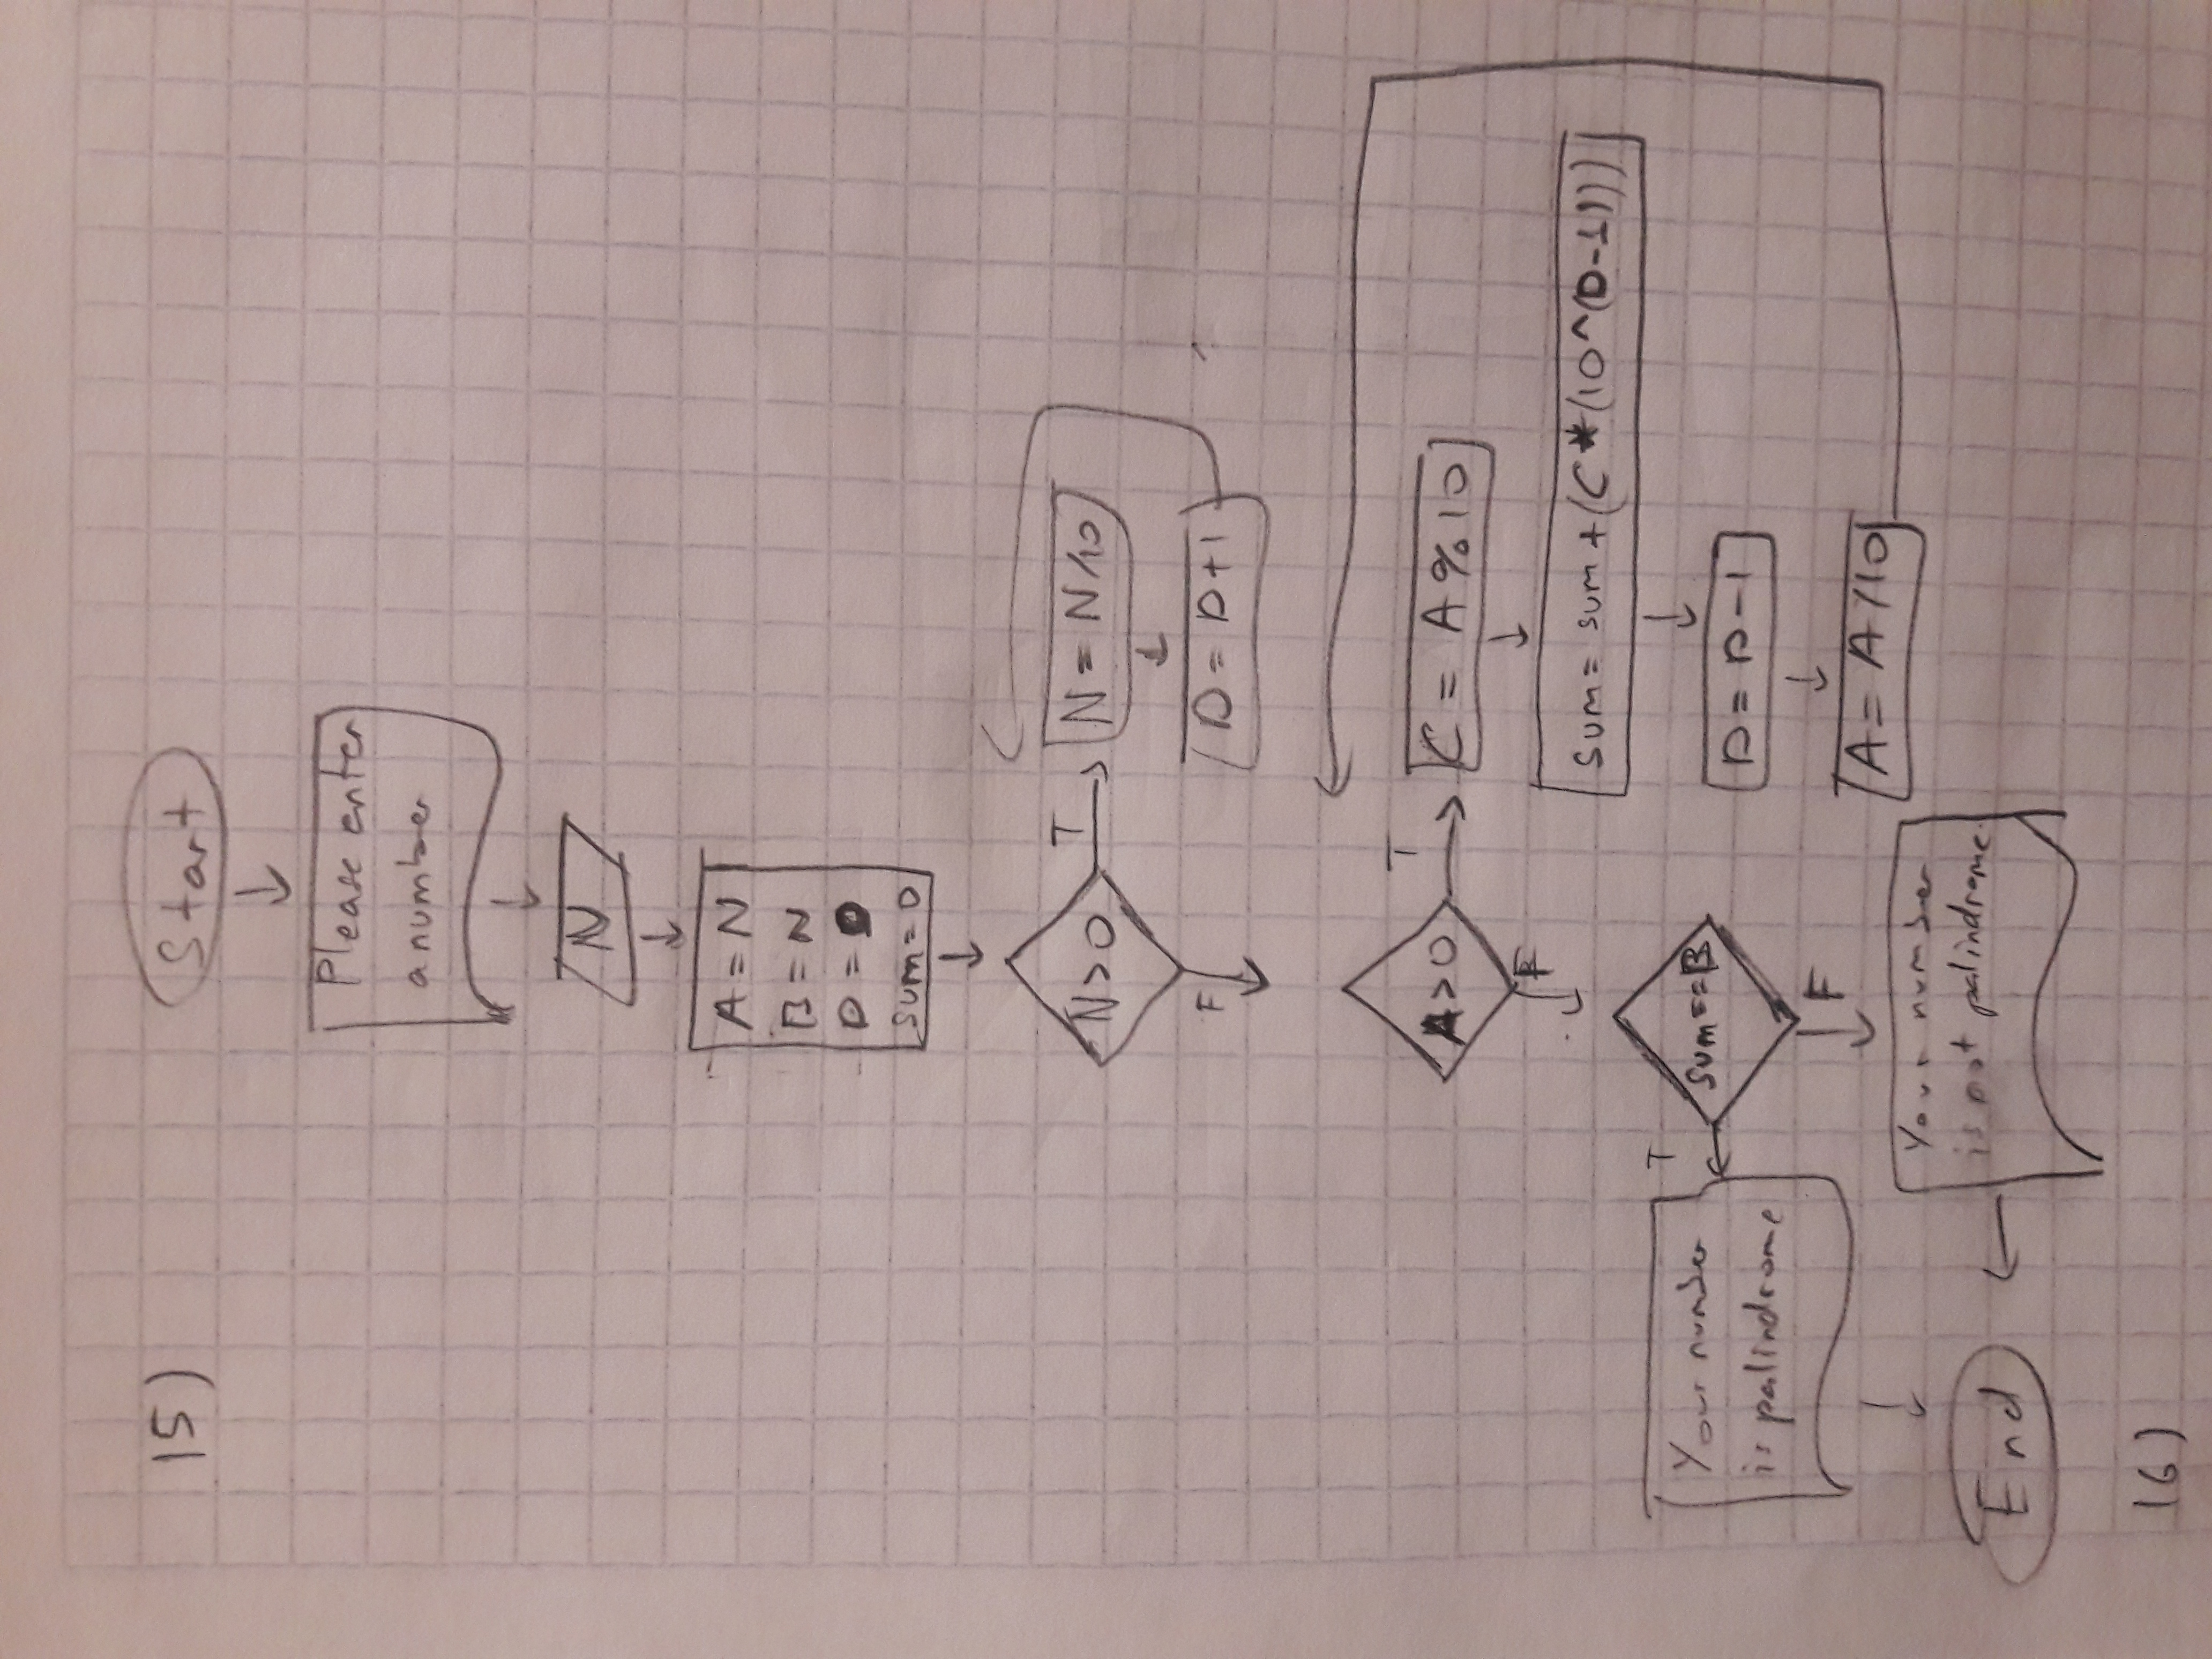 15)
Start
Please enter
a number
N
A = N
B = N
D = 0
sum = 0
N > 0
T
N = N/10
D = D+1
F
A > 0
T
C = A % 10
F
sum = sum + (C * (10^(D-1)))
sum == B
T
Your number
is palindrome
D = D-1
F
A = A/10
Your number
is not palindrome.
End
16)